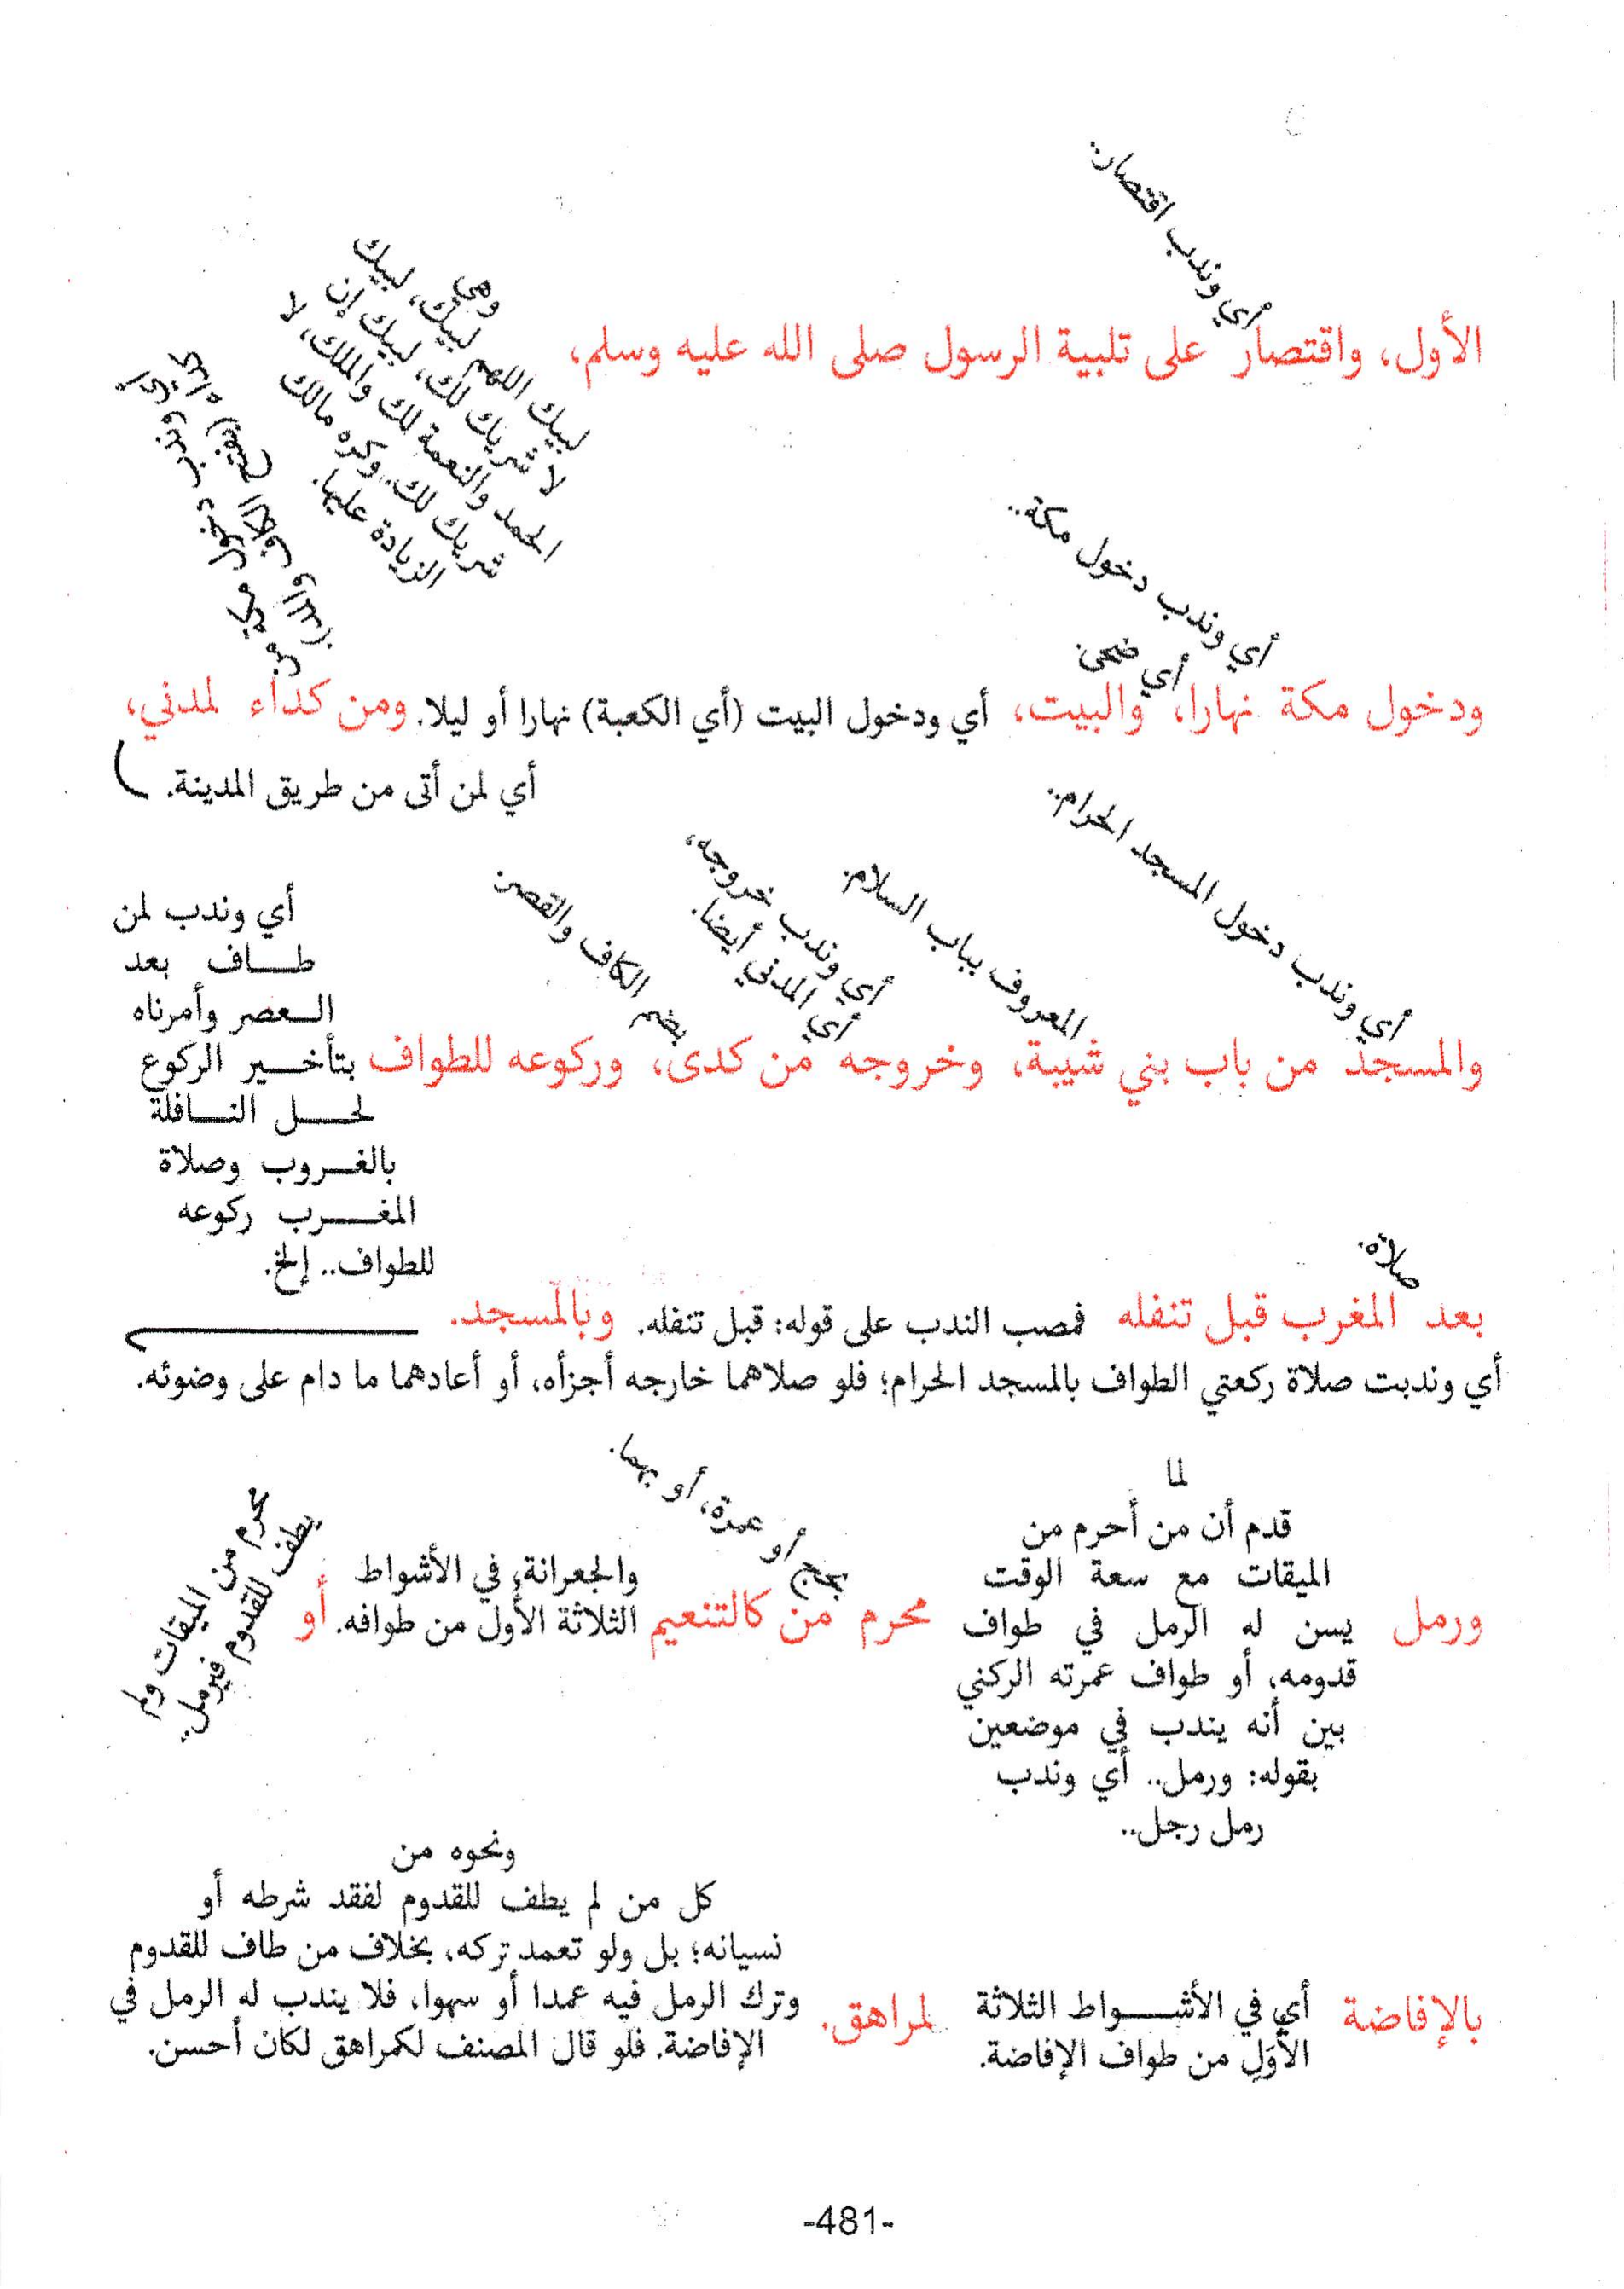 أي وندب اقتصار.
الأول، واقتصار على تلبية الرسول صلى الله عليه وسلم،
وهي
لبيك اللهم لبيك، لبيك
لا شريك لك، لبيك إن
الحمد والنعمة لك والملك، لا
شريك لك. وكره مالك
الزيادة عليها.
أي وندب دخول مكة..
أي ضحى.
أي وندب دخول مكة من
كداء (بفتح الكاف والمد).
ودخول مكة نهارا، والبيت، أي ودخول البيت (أي الكعبة) نهارا أو ليلا. ومن كداء لمدني،
أي لمن أتى من طريق المدينة.
أي وندب دخول المسجد الحرام..
المعروف بباب السلام.
أي وندب خروجه،
أي المدني أيضا.
بضم الكاف والقصر.
والمسجد من باب بني شيبة، وخروجه من كدى، وركوعه للطواف
أي وندب لمن
طاف بعد
العصر وأمرناه
بتأخير الركوع
لحل النافلة
بالغروب وصلاة
المغرب ركوعه
للطواف.. إلخ.
صلاة.
بعد المغرب قبل تنفله فمصب الندب على قوله: قبل تنفله. وبالمسجد.
أي وندبت صلاة ركعتي الطواف بالمسجد الحرام؛ فلو صلاهما خارجه أجزأه، أو أعادهما ما دام على وضوئه.
ورمل
لما
قدم أن من أحرم من
الميقات مع سعة الوقت
يسن له الرمل في طواف
قدومه، أو طواف عمرته الركني
بين أنه يندب في موضعين
بقوله: ورمل.. أي وندب
رمل رجل..
بحج أو عمرة، أو بهما.
محرم من كالتنعيم
والجعرانة، في الأشواط
الثلاثة الأول من طوافه. أو
محرم من الميقات ولم
يطف للقدوم فيرمل.
بالإفاضة
أي في الأشواط الثلاثة
الأُوَلِ من طواف الإفاضة.
لمراهق.
ونحوه من
كل من لم يطف للقدوم لفقد شرطه أو
نسيانه؛ بل ولو تعمد تركه، بخلاف من طاف للقدوم
وترك الرمل فيه عمدا أو سهوا، فلا يندب له الرمل في
الإفاضة. فلو قال المصنف لكمراهق لكان أحسن.
-481-